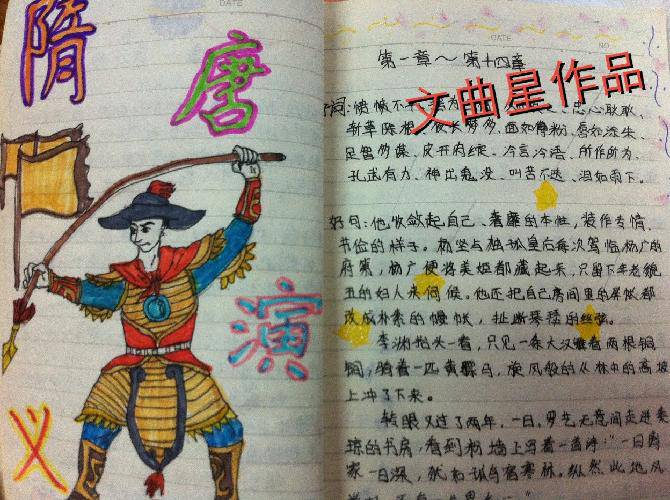 隋
唐
演
义
DATE
DATE
NO
第一章～第十四章
文曲星作品
斩草除根、
面如傅粉、唇如涂朱
足智多谋、皮开肉绽、冷言冷语、所作所为、
孔武有力、神出鬼没、叫苦不迭、泪如雨下。
好句：他收敛起自己、奢靡的本性，装作专情、
节俭的样子。杨坚与独孤皇后每次驾临杨广的
府第，杨广便将美姬都藏起来，只留下年老貌
丑的妇人来伺候。他还把自己房间里的屏帐都
改成朴素的幔帐，扯断琴瑟的丝弦。
李渊抬头一看，只见一条大汉
两根铜
锏，骑着一匹黄骠马，旋风般的从林中的高坡
上冲了下来。
转眼又过了两年，一日，罗艺无意间走进秦
琼的书房，看到粉墙上写着一首诗："一日离
家一日深，犹如孤鸟宿寒林。纵然此地风